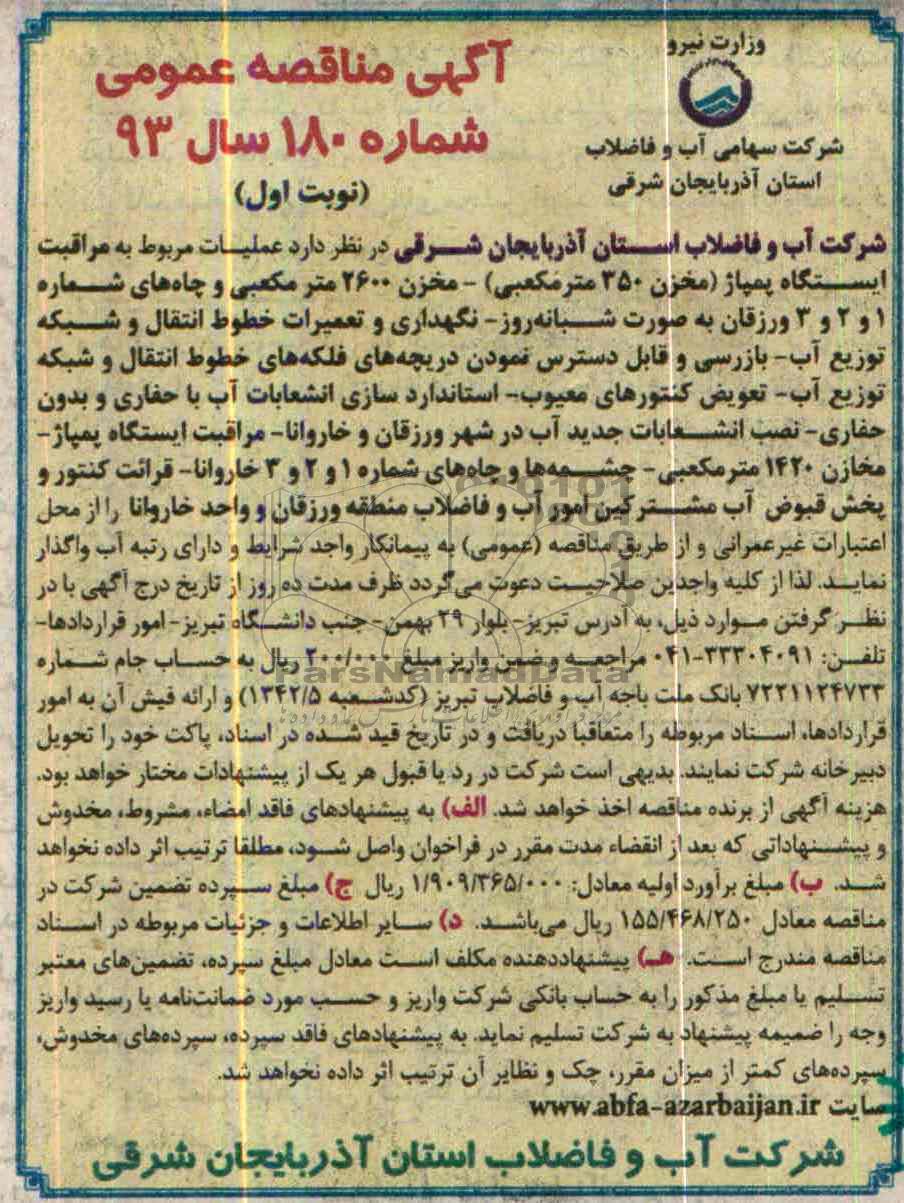 وزارت نیرو
شرکت سهامی آب و فاضلاب
استان آذربایجان شرقی
آگهی مناقصه عمومی
شماره ۱۸۰ سال ۹۳
(نوبت اول)
شرکت آب و فاضلاب استان آذربایجان شرقی در نظر دارد عملیات مربوط به مراقبت
ایستگاه پمپاژ (مخزن ۳۵۰ مترمکعبی) - مخزن ۲۶۰۰ متر مکعبی و چاه‌های شماره
۱ و ۲ و ۳ ورزقان به صورت شبانه‌روز- نگهداری و تعمیرات خطوط انتقال و شبکه
توزیع آب- بازرسی و قابل دسترس نمودن دریچه‌های فلکه‌های خطوط انتقال و شبکه
توزیع آب- تعویض کنتورهای معیوب- استاندارد سازی انشعابات آب با حفاری و بدون
حفاری- نصب انشعابات جدید آب در شهر ورزقان و خاروانا- مراقبت ایستگاه پمپاژ-
مخازن ۱۴۲۰ مترمکعبی- چشمه‌ها و چاه‌های شماره ۱ و ۲ و ۳ خاروانا- قرائت کنتور و
پخش قبوض آب مشترکین امور آب و فاضلاب منطقه ورزقان و واحد خاروانا را از محل
اعتبارات غیرعمرانی و از طریق مناقصه (عمومی) به پیمانکار واجد شرایط و دارای رتبه آب واگذار
نماید. لذا از کلیه واجدین صلاحیت دعوت می‌گردد ظرف مدت ده روز از تاریخ درج آگهی با در
نظر گرفتن موارد ذیل، به آدرس تبریز- بلوار ۲۹ بهمن- جنب دانشگاه تبریز- امور قراردادها-
تلفن: ۳۳۳۰۴۰۹۱-۰۴۱ مراجعه و ضمن واریز مبلغ ۲۰۰/۰۰۰ ریال به حساب جام شماره
۷۲۲۱۱۲۴۷۳۳ بانک ملت باجه آب و فاضلاب تبریز (کدشعبه ۱۳۴۲/۵) و ارائه فیش آن به امور
قراردادها، اسناد مربوطه را متعاقبا دریافت و در تاریخ قید شده در اسناد، پاکت خود را تحویل
دبیرخانه شرکت نمایند. بدیهی است شرکت در رد یا قبول هر یک از پیشنهادات مختار خواهد بود.
هزینه آگهی از برنده مناقصه اخذ خواهد شد. الف) به پیشنهادهای فاقد امضاء، مشروط، مخدوش
و پیشنهاداتی که بعد از انقضاء مدت مقرر در فراخوان واصل شود، مطلقا ترتیب اثر داده نخواهد
شد. ب) مبلغ برآورد اولیه معادل: ۱/۹۰۹/۳۶۵/۰۰۰ ریال ج) مبلغ سپرده تضمین شرکت در
مناقصه معادل ۱۵۵/۴۶۸/۲۵۰ ریال می‌باشد. د) سایر اطلاعات و جزئیات مربوطه در اسناد
مناقصه مندرج است. هـ) پیشنهاددهنده مکلف است معادل مبلغ سپرده، تضمین‌های معتبر
تسلیم یا مبلغ مذکور را به حساب بانکی شرکت واریز و حسب مورد ضمانت‌نامه یا رسید واریز
وجه را ضمیمه پیشنهاد به شرکت تسلیم نماید. به پیشنهادهای فاقد سپرده، سپرده‌های مخدوش،
سپرده‌های کمتر از میزان مقرر، چک و نظایر آن ترتیب اثر داده نخواهد شد.
سایت www.abfa-azarbaijan.ir
شرکت آب و فاضلاب استان آذربایجان شرقی
ParsNamadData